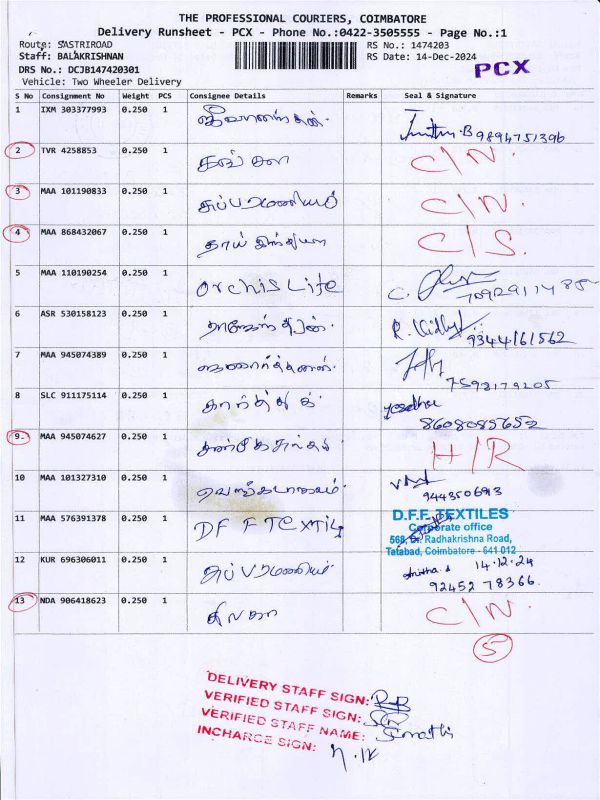 THE PROFESSIONAL COURIERS, COIMBATORE
Delivery Runsheet - PCX - Phone No.:0422-3505555 - Page No.:1
Route: SASTRIROAD RS No.: 1474203
Staff: BALAKRISHNAN RS Date: 14-Dec-2024
DRS No.: DCJB147420301 PCX
Vehicle: Two Wheeler Delivery
S No Consignment No Weight PCS Consignee Details Remarks Seal & Signature
1 IXM 303377993 0.250 1 9894751396
2 TVR 4258853 0.250 1 C/N.
3 MAA 101190833 0.250 1 சுப்பரமணியம் C/N.
4 MAA 868432067 0.250 1 C/S.
5 MAA 110190254 0.250 1 Orchis Life
6 ASR 530158123 0.250 1 9344161562
7 MAA 945074389 0.250 1 7598179205
8 SLC 911175114 0.250 1 கார்த்திக் 8608085652
9 MAA 945074627 0.250 1 H/R
10 MAA 101327310 0.250 1
11 MAA 576391378 0.250 1 DF F TEXTILS D.F.F. TEXTILES
Corporate office
568, Dr. Radhakrishna Road,
Tatabad, Coimbatore - 641 012
12 KUR 696306011 0.250 1 சுப்பரமணியம் 14.12.24
92452 78366.
13 NDA 906418623 0.250 1 C/N.
5
DELIVERY STAFF SIGN:
VERIFIED STAFF SIGN:
VERIFIED STAFF NAME:
INCHARGE SIGN: